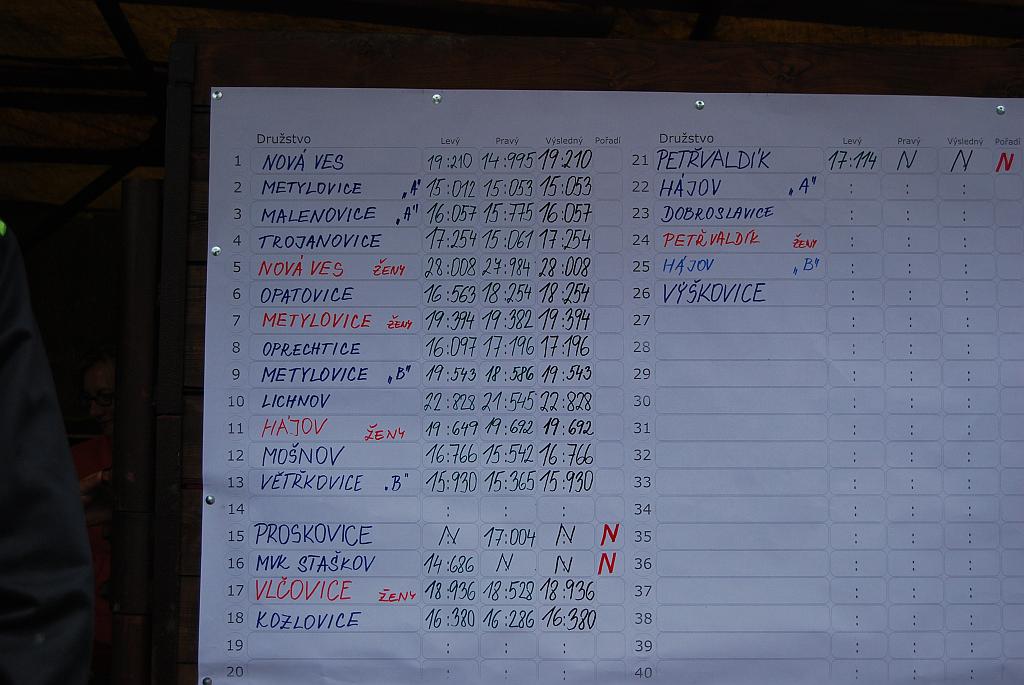 Družstvo Levý Pravý Výsledný Pořadí
1 NOVÁ VES 19:210 14:995 19:210
2 METYLOVICE „A" 15:012 15:053 15:053
3 MALENOVICE „A" 16:057 15:775 16:057
4 TROJANOVICE 17:254 15:061 17:254
5 NOVÁ VES ŽENY 28:008 27:984 28:008
6 OPATOVICE 16:563 18:254 18:254
7 METYLOVICE ŽENY 19:394 19:382 19:394
8 OPRECHTICE 16:097 17:196 17:196
9 METYLOVICE „B" 19:543 18:586 19:543
10 LICHNOV 22:828 21:545 22:828
11 HÁJOV ŽENY 19:649 19:692 19:692
12 MOŠNOV 16:766 15:542 16:766
13 VĚTŘKOVICE „B" 15:930 15:365 15:930
14 : : :
15 PROSKOVICE N 17:004 N N
16 MVK STAŠKOV 14:686 N N N
17 VLČOVICE ŽENY 18:936 18:528 18:936
18 KOZLOVICE 16:380 16:286 16:380
19 : : :
20 : : :
Družstvo Levý Pravý Výsledný Pořadí
21 PETŘVALDÍK 17:114 N N N
22 HÁJOV „A" : : :
23 DOBROSLAVICE : : :
24 PETŘVALDÍK ŽENY : : :
25 HÁJOV „B" : : :
26 VÝŠKOVICE : : :
27 : : :
28 : : :
29 : : :
30 : : :
31 : : :
32 : : :
33 : : :
34 : : :
35 : : :
36 : : :
37 : : :
38 : : :
39 : : :
40 : : :